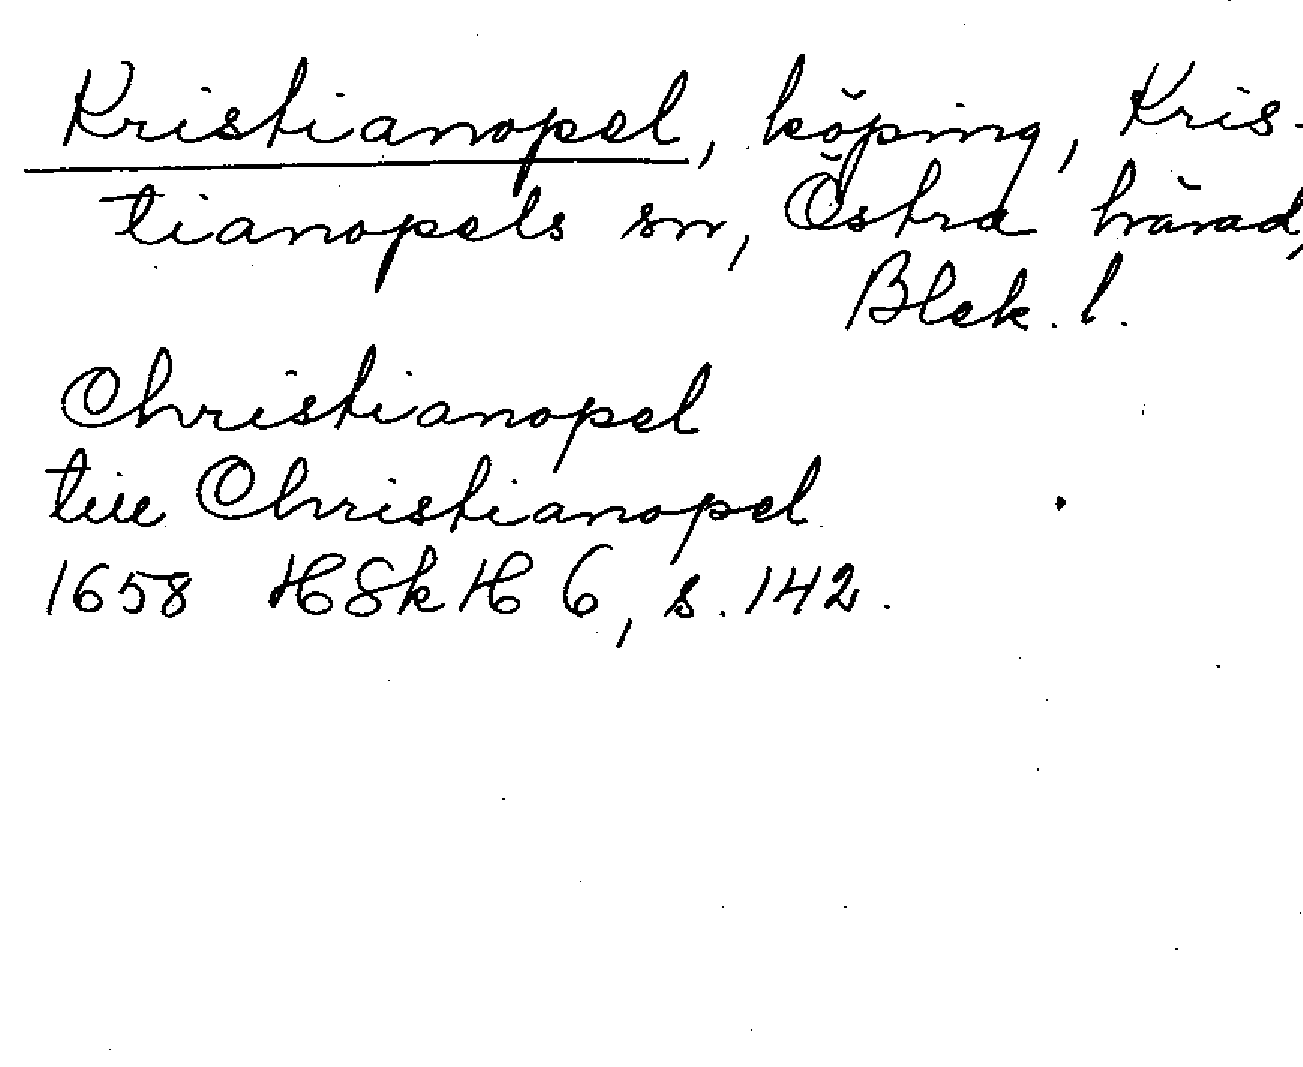 Kristianopel, köping, Kris-
tianopels sn, Östra härad,
Blek. l.
Christianopel
till Christianopel
1658 HSkH 6, s. 142.